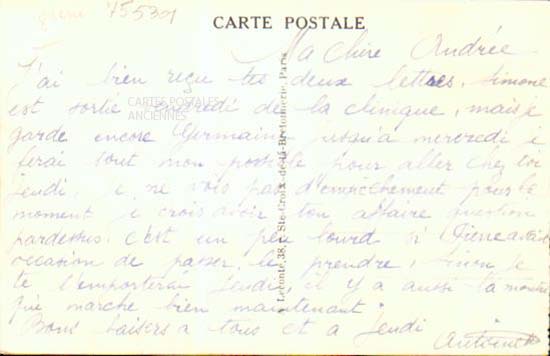 755301
CARTE POSTALE
Ma chère Andrée
J'ai bien reçu tes deux lettres, Simone
est sortie vendredi de la clinique, mais je
CARTES POSTALES
ANCIENNES
garde encore Germaine jusqu'à mercredi je
ferai tout mon possible pour aller chez toi
jeudi, je ne vois pas d'empêchement pour le
moment je crois avoir ton affaire question
pardessus. c'est un peu lourd si Pierre avait
occasion de passer le prendre, sinon je
te l'emporterai jeudi, il y a aussi ta montre
qui marche bien maintenant.
Bons baisers a tous et a jeudi
Antoinette
Laconte, 38, Ste-Croix-de-la-Bretonnerie, Paris